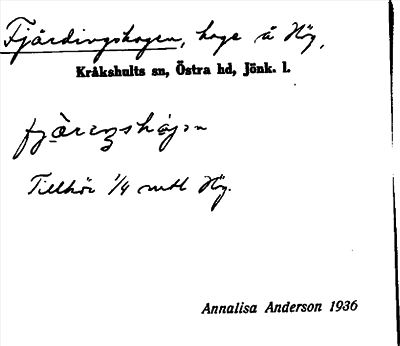 Fjärdingshagen, hage å Hög,
Kråkshults sn, Östra hd, Jönk. l.
fjæ̀rıŋshàgɔn
Tillhör 1/4 mtl Hög.
Annalisa Anderson 1936